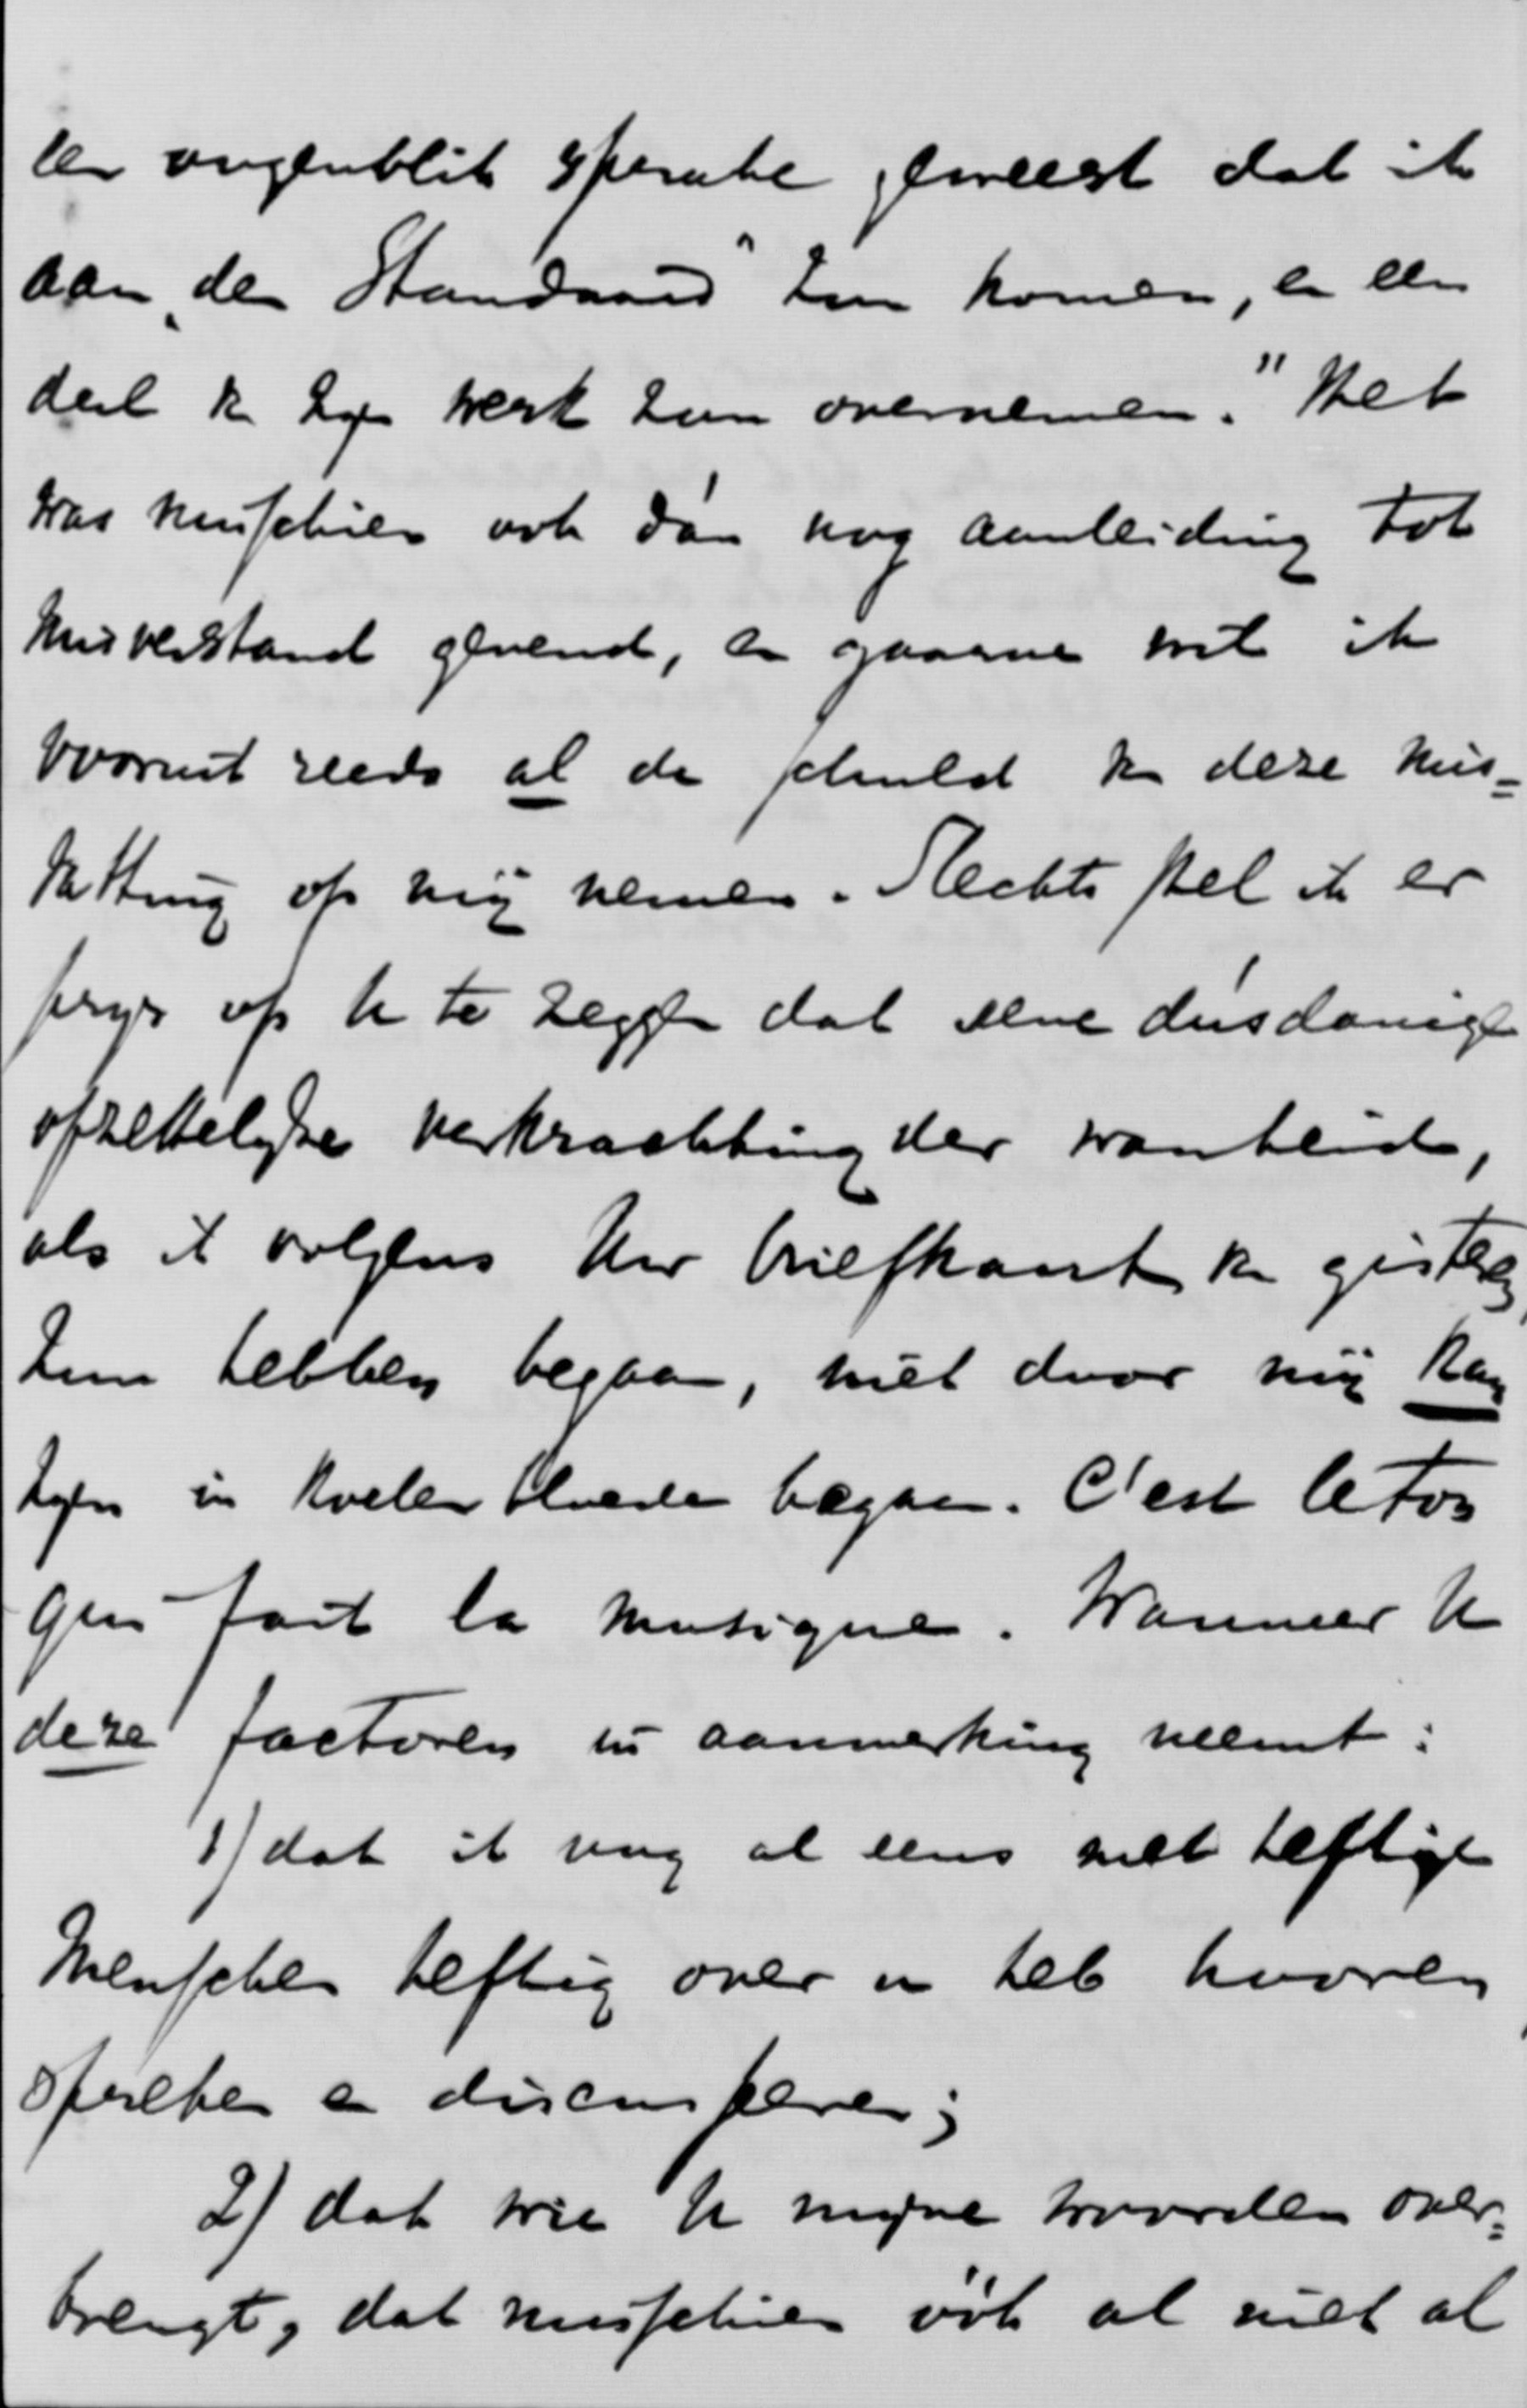 een oogenblik sprake geweest dat ik
aan „de Standaard" zou komen, en een
deel v. zijn werk zou overnemen." Het
was misschien ook dán nog aanleiding tot
misverstand gevend, en gaarne wil ik
vooruit reeds al de schuld v. deze mis-
vatting op mij nemen. Slechts stel ik er
prijs op U te zeggen dat eene dúsdanige
opzettelijke verkrachting der waarheid,
als ik volgens Uw briefkaart v. gisteren
zou hebben begaan, niet door mij kan
zijn in koelen bloede begaan. C'est le ton
qui fait la musique. Wanneer U
deze factoren in aanmerking neemt:
1) dat ik nog al eens met heftige
menschen heftig over u heb hooren
spreken en discuspeeren;
2) dat wie U mijne woorden over-
brengt, dat misschien óók al niet al